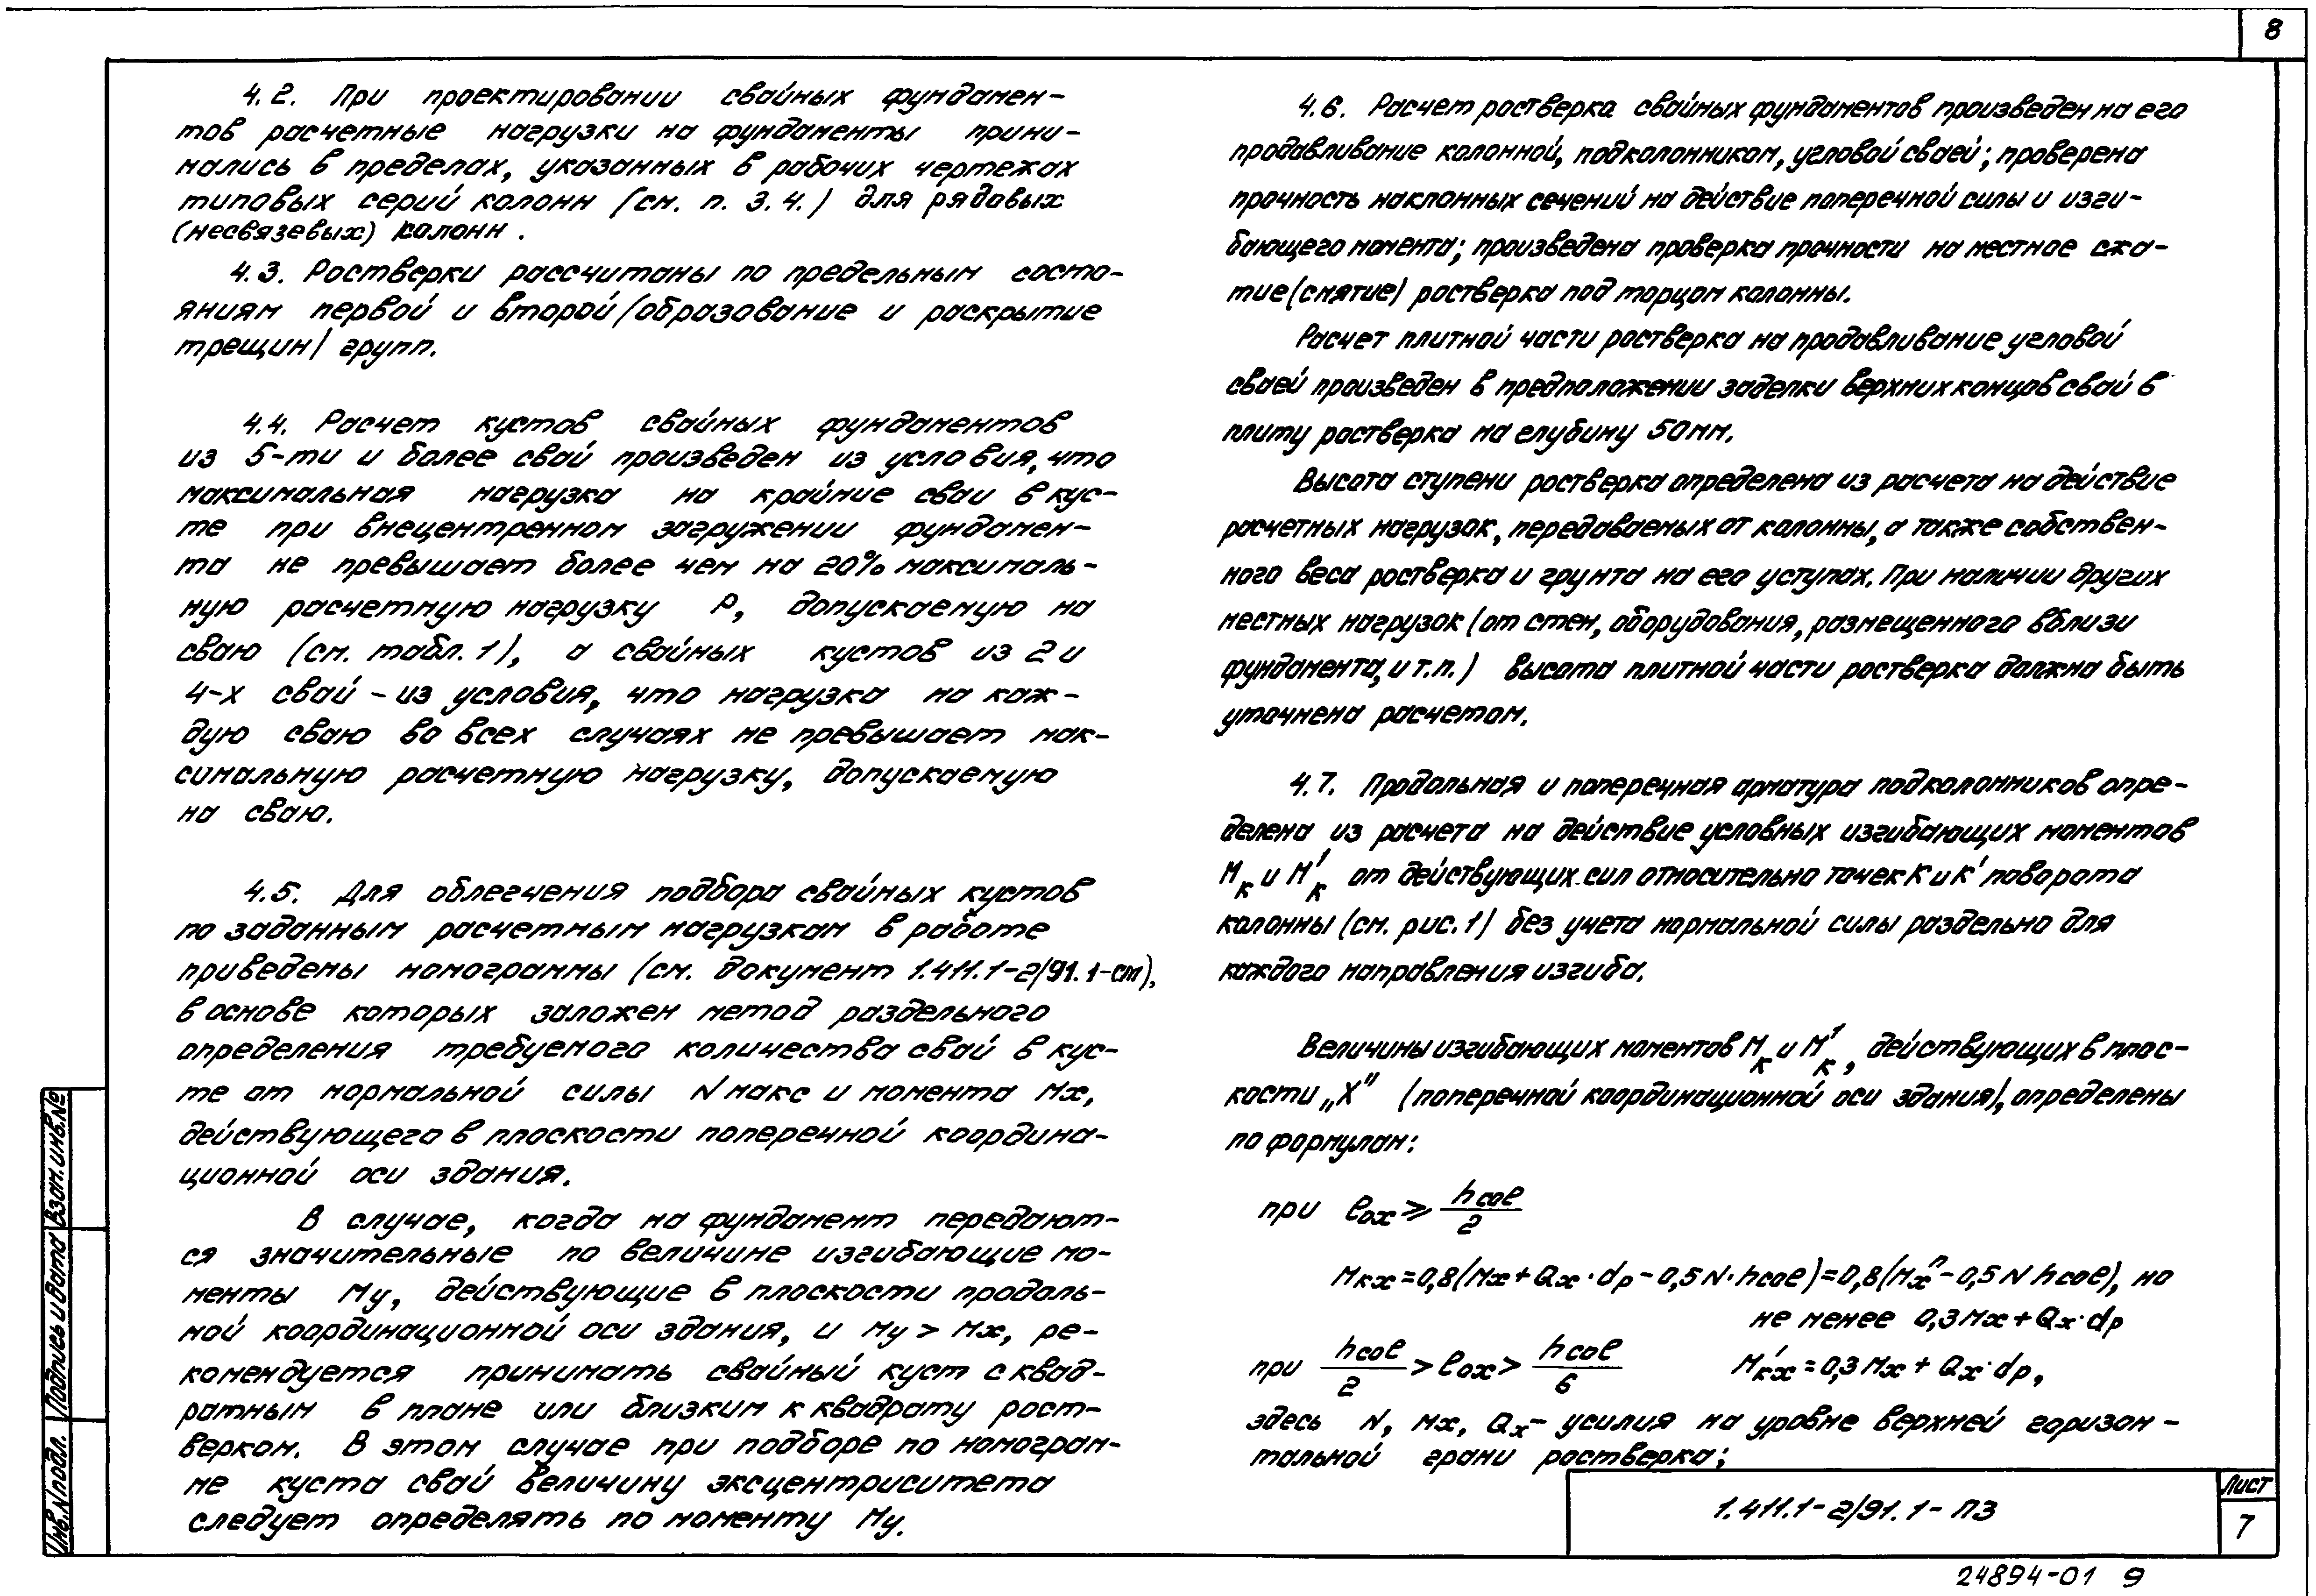 8
4.2. При проектировании свайных фундамен-
тов расчетные нагрузки на фундаменты прини-
мались в пределах, указанных в рабочих чертежах
типовых серий колонн (см. п. 3.4.) для рядовых
(несвязевых) колонн.
4.3. Ростверки рассчитаны по предельным состо-
яниям первой и второй (образование и раскрытие
трещин) групп.
4.4. Расчет кустов свайных фундаментов
из 5-ти и более свай произведен из условия, что
максимальная нагрузка на крайние сваи в кус-
те при внецентренном загружении фундамен-
та не превышает более чем на 20% максималь-
ную расчетную нагрузку Р, допускаемую на
сваю (см. табл. 1), а свайных кустов из 2 и
4-х свай - из условия, что нагрузка на каж-
дую сваю во всех случаях не превышает мак-
симальную расчетную нагрузку, допускаемую
на сваю.
4.5. Для облегчения подбора свайных кустов
по заданным расчетным нагрузкам в работе
приведены номограммы (см. документ 1.411.1-2/91.1-см),
в основе которых заложен метод раздельного
определения требуемого количества свай в кус-
те от нормальной силы N макс и момента Mx,
действующего в плоскости поперечной координа-
ционной оси здания.
В случае, когда на фундамент передают-
ся значительные по величине изгибающие мо-
менты My, действующие в плоскости продоль-
ной координационной оси здания, и My > Mx, ре-
комендуется принимать свайный куст с квад-
ратным в плане или близким к квадрату рост-
верком. В этом случае при подборе по номограм-
ме куста свай величину эксцентриситета
следует определять по моменту My.
4.6. Расчет ростверка свайных фундаментов произведен на его
продавливание колонной, подколонником, угловой сваей; проверена
прочность наклонных сечений на действие поперечной силы и изги-
бающего момента; произведена проверка прочности на местное сжа-
тие (смятие) ростверка под торцом колонны.
Расчет плитной части ростверка на продавливание угловой
сваей произведен в предположении заделки верхних концов свай в
плиту ростверка на глубину 50 мм.
Высота ступени ростверка определена из расчета на действие
расчетных нагрузок, передаваемых от колонны, а также собствен-
ного веса ростверка и грунта на его уступах. При наличии других
местных нагрузок (от стен, оборудования, размещенного вблизи
фундамента, и т.п.) высота плитной части ростверка должна быть
уточнена расчетом.
4.7. Продольная и поперечная арматура подколонников опре-
делена из расчета на действие условных изгибающих моментов
Mк и M'к от действующих сил относительно точек К и К' поворота
колонны (см. рис. 1) без учета нормальной силы раздельно для
каждого направления изгиба.
Величины изгибающих моментов Mк и M'к, действующих в плос-
кости „X" (поперечной координационной оси здания), определены
по формулам:
при eox ⩾ hcol/2
Mкx = 0,8(Mx + Qx · dp - 0,5 N · hcol) = 0,8(Mxⁿ - 0,5 N hcol), но
не менее 0,3 Mx + Qx · dp
при hcol/2 > eox > hcol/6 M'кx = 0,3 Mx + Qx · dp,
здесь N, Mx, Qx - усилия на уровне верхней горизон-
тальной грани ростверка;
1.411.1-2/91.1-ПЗ
Лист
7
24894-01 9
Инв.N подл.
Подпись и дата
Взам.инв.№